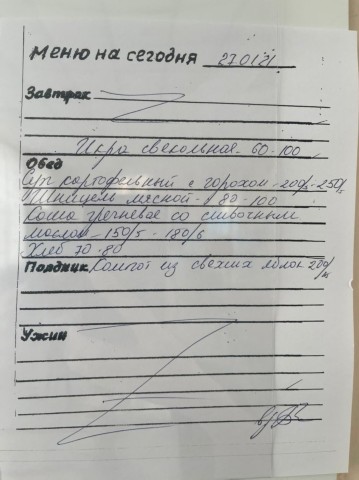 Меню на сегодня 27.01.21
Завтрак
Икра свекольная - 60-100
Обед
Суп картофельный с горохом - 200/5-250/5
Шницель мясной - 80-100
Каша гречневая со сливочным
маслом - 150/5 - 180/6
Хлеб 70-80
Полдник Компот из свежих яблок 200/
Ужин